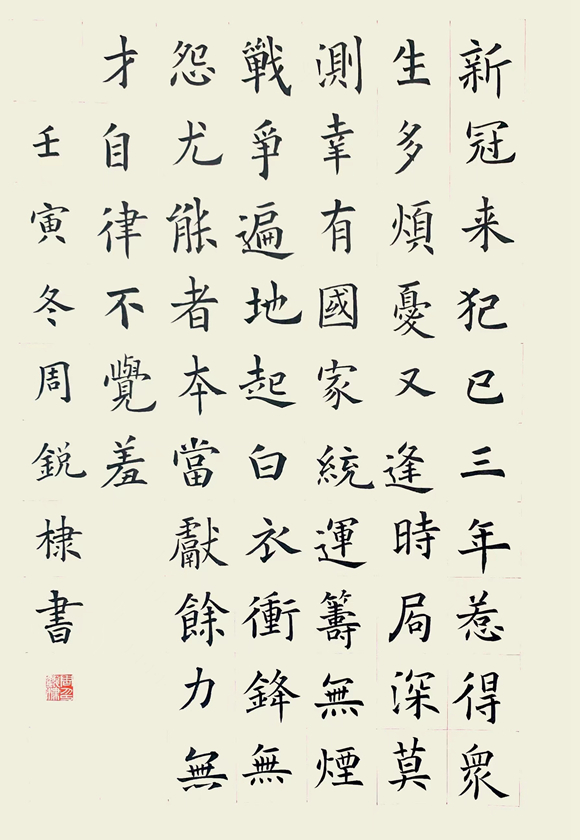 新冠来犯已三年惹得衆
生多煩憂又逢時局深莫
測幸有國家統運籌無煙
戰爭遍地起白衣衝鋒無
怨尤能者本當獻餘力無
才自律不覺羞
壬寅冬周銳棣書